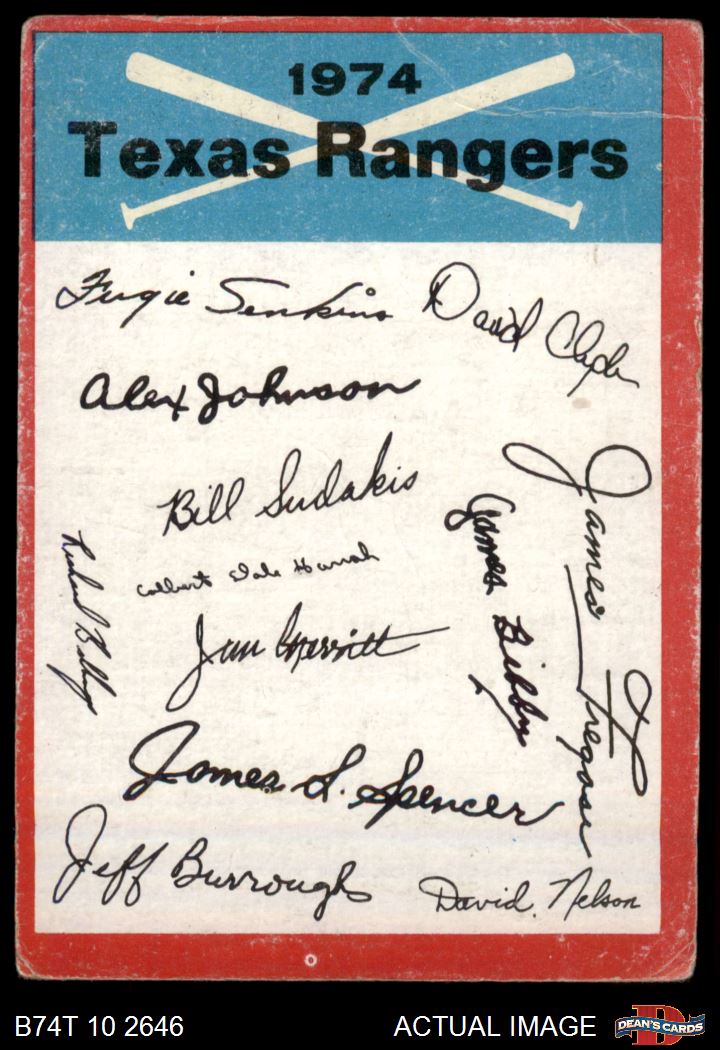 1974
Texas Rangers
Fergie Jenkins
David Clyde
Alex Johnson
Bill Sudakis
James Fregosi
James Bibby
Richard Billings
Jim Merritt
James L. Spencer
Jeff Burroughs
David Nelson
B74T 10 2646
ACTUAL IMAGE
DEAN'S CARDS